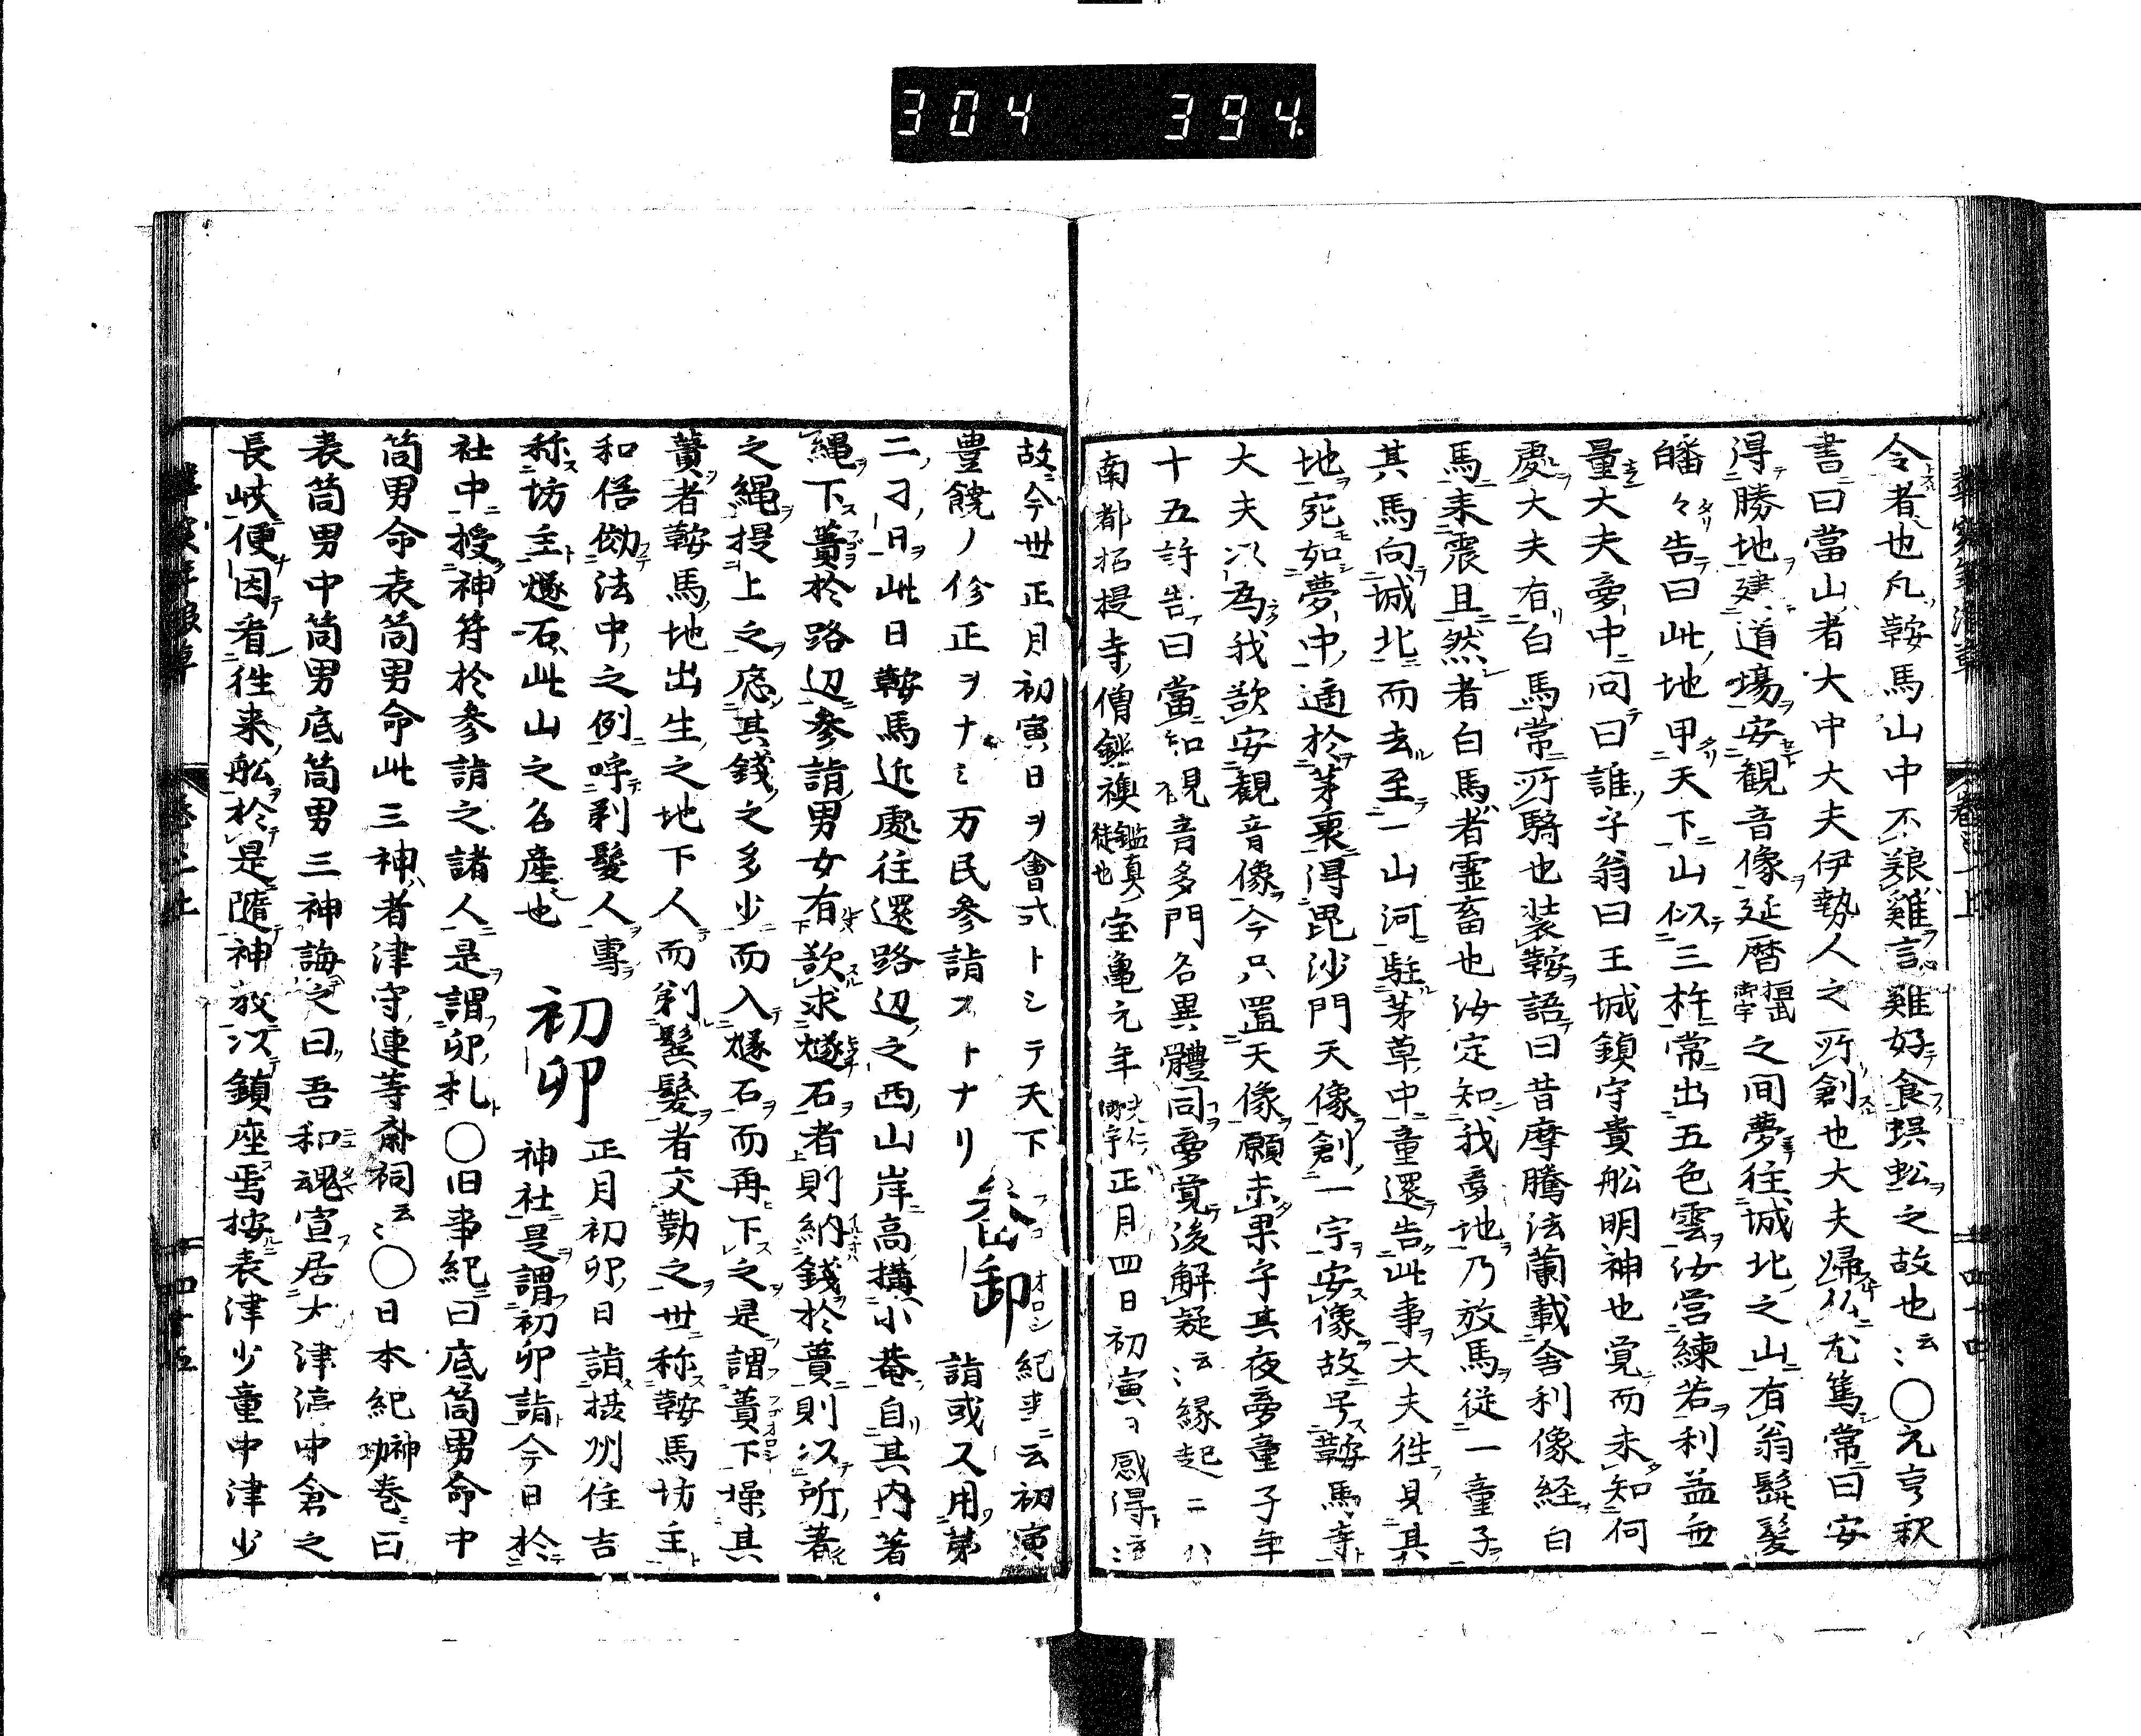 304 394.
令者也凡鞍馬山中不粮雞言雞好食蜈蚣之故也云〻○元亨釈
書曰當山者大中大夫伊勢人之所創也大夫歸仏尤篤常曰安
得勝地建道場安観音像延暦桓武帝宇之间夢往城北之山有翁鬚髪
皤々告曰此地甲天下山似三杵常出五色雲汝営練若利益無
量大夫夢中问曰誰乎翁曰王城鎮守貴舩明神也覚而未知何
處大夫有白馬常所騎也装鞍語曰昔摩騰法蘭載舎利像経白
馬来震且然者白馬者霊畜也汝定知我夢地乃放馬従一童子
其馬向城北而去至一山河駐茅草中童還告此事大夫往見其
地宛如夢中適於茅裏得毘沙門天像創一宇安像故号鞍馬寺
大夫以為我欲安観音像今只置天像願未果乎其夜夢童子年
十五許告曰當知視音多門名異體同夢覚後解疑云〻縁起ニハ
南都招提寺僧鑑禎鑑真徒也宝亀元年光仁御宇正月四日初寅ヽ感得云〻
故今世正月初寅日ヲ會式トシテ天下
豊饒ノ修正ヲナシ万民参詣ストナリ
畚卸 フゴオロシ
紀事ニ云初寅
詣或ス用第
二寅日此日鞍馬近處往還路辺之西山岸高搆小菴自其内著
縄下蕢於路辺参詣男女有欲求燧石者則納錢於蕢則以所著
之縄提上之応其錢之多少而入燧石而再下之是謂蕢下操其
蕢者鞍馬地出生之地下人而剃鬚髪者交勤之世称鞍馬坊主
和俗傚法中之例呼剃髪人專
称坊主燧石此山之名産也
初卯
正月初卯日詣摂州住吉
神社是謂初卯詣今日於
社中授神符於参詣之諸人是謂卯札○旧事紀曰底筒男命中
筒男命表筒男命此三神者津守連等斎祠云〻○日本紀神功巻曰
表筒男中筒男底筒男三神誨之曰吾和魂宜居大津渟中倉之
長峡便因看往来舩於是隨神教以鎮座焉按表津少童中津少